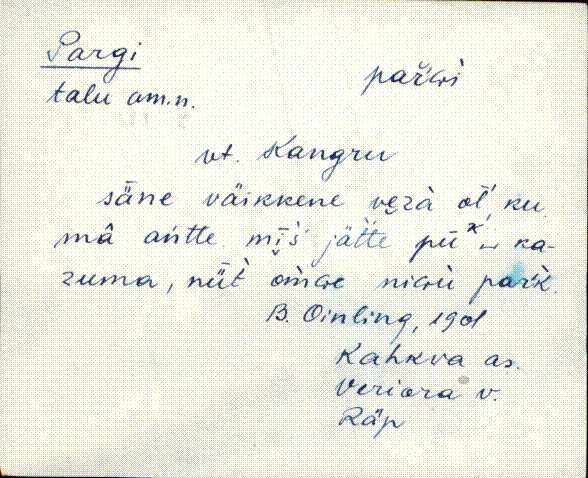 Pargi
talu am.n.
pařɢi
vt. Kangru
säne väikkene vezà oĺ, ku
mâ antte mīš jätte pū ka-
zuma, nüt̀ om̀ɢe niɢù pařk.
B. Oinling, 1901
Kahkva as.
Veriora v.
Räp